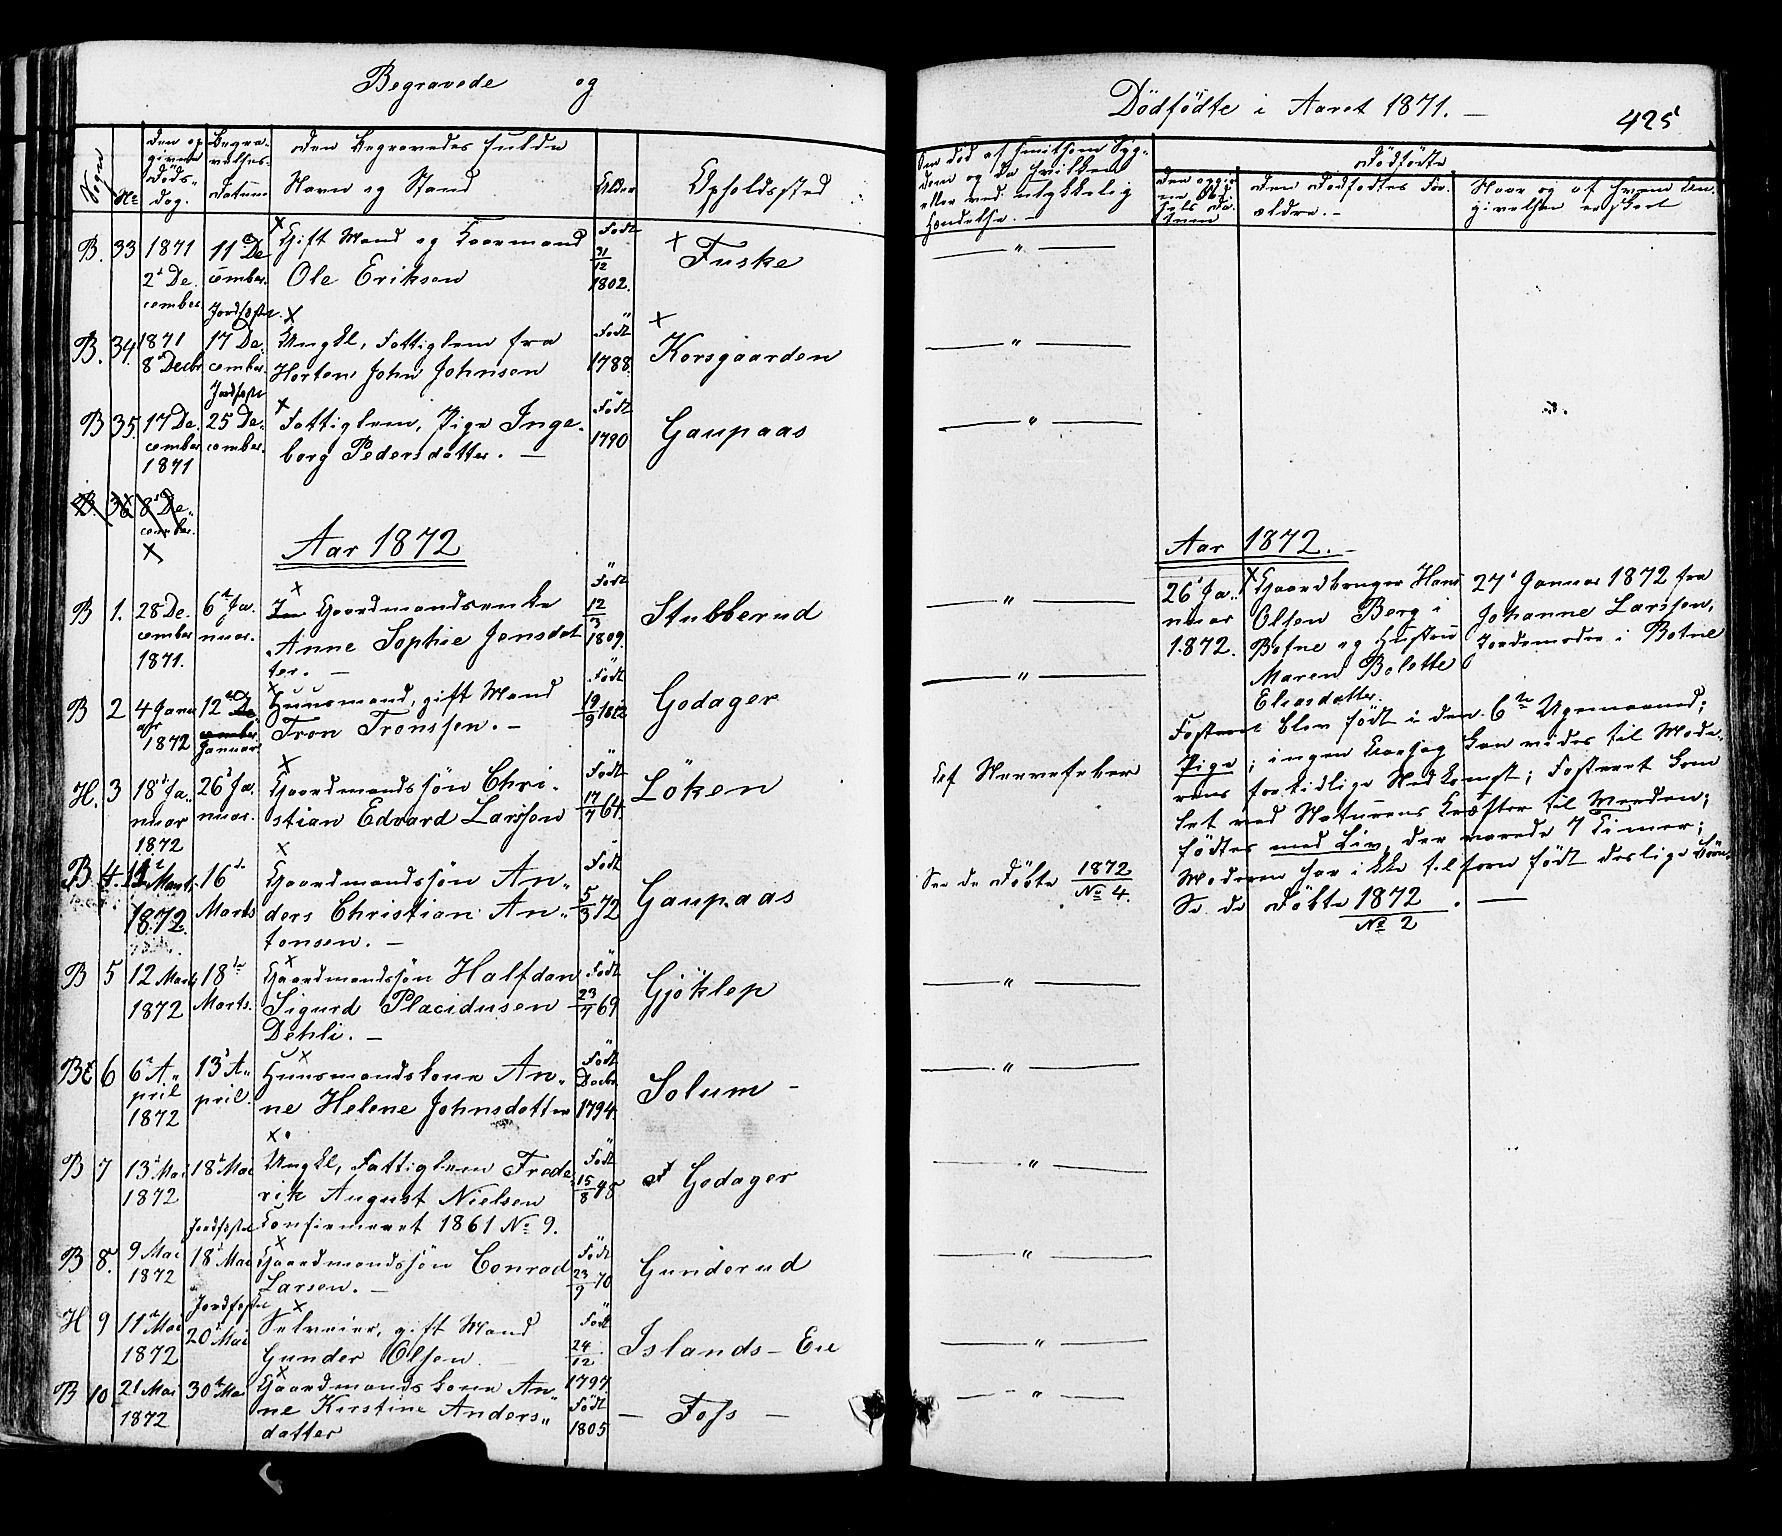 Begravede og
Dödfödte i Aaret 1871. —
425
Sogn
No
Den op
givne
Döds-
dag.
Begra-
velses-
datum
Den Begravedes fulde
Navn og Stand
Alder
Opholdssted
Om död af smitsom Syg-
dom og da hvilken
eller ved ulykkelig
Hændelse. —
Dödfödte
Den opgiv-
ne Föd-
sels Da-
tum
Den Dödfödtes For-
ældre. —
Naar og af hvem An-
givelsen er skeet
B. 33 1871 2d De-
cember
11 De
cember.
Gift Mand og Kaarmand
Ole Eriksen
Född 31/12 1802.
Fuske
— " —
Jordfæstet.
B. 34. 1871
8d Decbr
17 De
cember.
Ungkl, Fattiglem fra
Horten John Johnsen
Född 1788.
Korsgaarden
— " —
Jordfæstet
B 35. 17 De-
cember
1871
25 De-
cember.
Fattiglem, Pige Inge-
borg Pedersdatter. —
Född 1790
Gaupaas
— " —
B. 36 8d De-
cember.
Aar 1872
Aar 1872. —
B 1. 28 De-
cember
1871.
6d Ja-
nuar.
Gaardmandsenke
Anne Sophie Jensdat
ter. —
Född 12/3 1809.
Stubberud
— " —
26d Ja-
nuar
1872.
Gaardbruger Hans
Olsen Berg i
Botne og Hustru
Maren Bolette
Eliasdatter.
27d Januar 1872 fra
Johanne Larssen,
Jordemoder i Botne
B 2 4 Janu
ar
1872
12te De
cember
Januar
Huusmand, gift Mand
Tron Tronssen. —
Född 19/9 1812
Godager
— " —
Fosteret blev född i den 6te Ugemaaned;
Pige; ingen Aarsag kan vides til Mode-
rens for tidlige Nedkomst; Fosteret kom
let ved Naturens Kræfter til Verden;
födtes med Liv, der varede 7 Timer;
Moderen har ikke tilforn född deslige Börn.
Se de Döbte 1872 . —
No 2
H. 3 18d Ja-
nuar
1872
26d Ja-
nuar.
Gaardmandssön Chri-
stian Edvard Larssen
Född 17/7 64.
Löken
Af Nervefeber
B 4. 1872.
16de
Marts
Gaardmandssön An-
ders Christian An-
tonsen. —
Född 5/3 72
Gaupaas
See de Döbte 1872
No 4.
B 5 12 Marts
1872
18de
Marts.
Gaardmandssön Halfdan
Sigurd Placidusen
Dehli. —
Född 23/7 69
Gjöklep
— " —
6 6d A-
pril
1872
13d A-
pril.
Huusmandskone An-
ne Helene Johnsdatter
Född Decbr 1794
Solum —
— " —
B 7 13d Mai
1872
18d Mai
Ungkl, Fattiglem Frede-
rik August Nielsen
Confirmeret 1861 No 9.
Född 15/8 45
Godager
— " —
Jordfæstet
B 8. 9 Mai
1872
18d Mai
Gaardmandssön Conrad
Larsen. —
Född 23/9 70
Gunderud
— " —
Jordfæstet
H 9 11d Mai
1872
20d Mai
Selveier, gift Mand
Gunder Olsen.
Född 24/12 1797.
Islands-Eie
— " —
B 10 21 Mai
1872
30te Mai
Gaardmandskone An-
ne Kirstine Anders-
datter
Född 1805
— Foss —
— " —